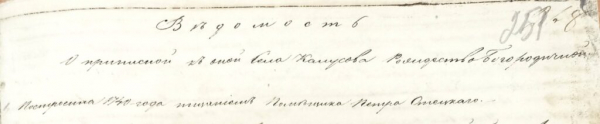 Вѣдомость
О приписной къ оной села Калусова Рождество-Богородичной
1. Построена 1740 года тщаніемъ Помѣщика Петра Стецкаго.